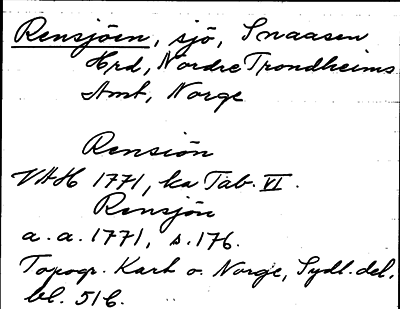 Rensjöen, sjö, Snaasen
Hrd, Nordre Trondheims
Amt, Norge
Rensiön
VAH 1771, ka Tab. VI.
Rensjön
a. a. 1771, s. 176.
Topogr. Kart o. Norge, Sydl. del,
bl. 51C.